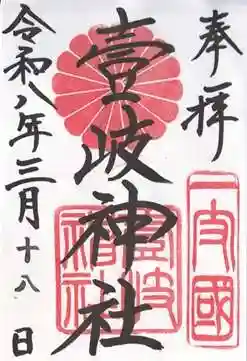 奉拝
壹岐神社
令和八年三月十八日
壹岐
神社